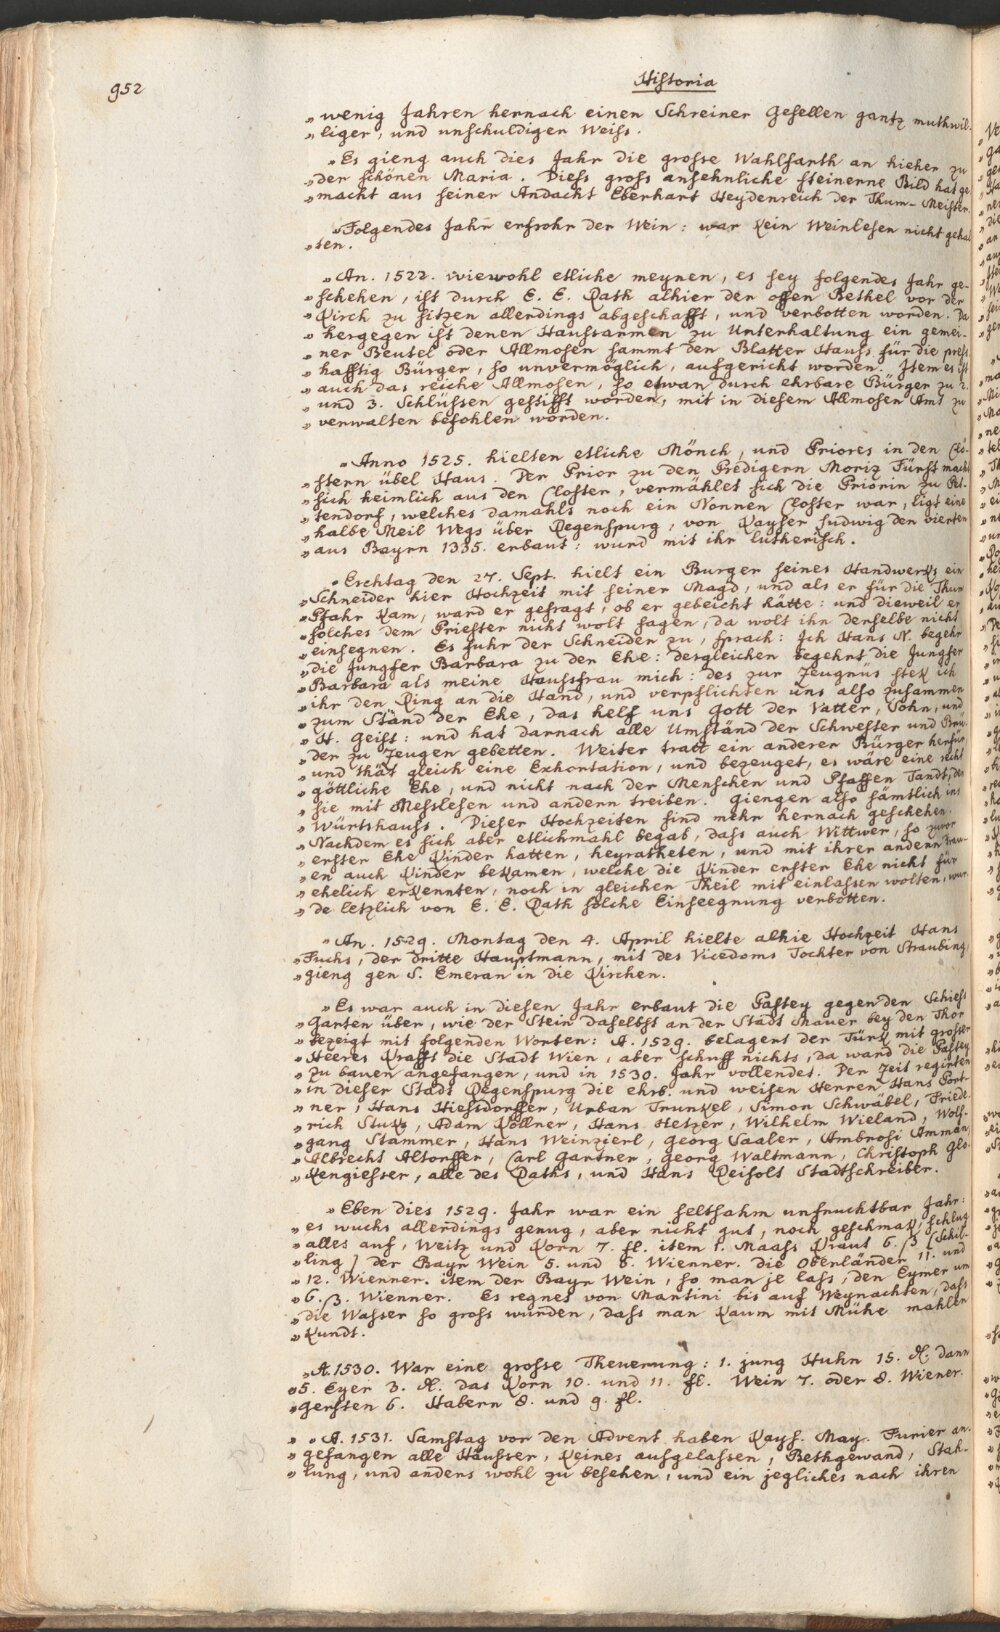 952
Historia
„ wenig Jahren hernach einen Schreiner Gesellen gantz muthwil-
„ liger, und unschuldiger Weiss.
„Es gieng auch dies Jahr die grosse Wahlfarth an hieher zu
„der schönen Maria. Diess gross ansehnliche steinerne Bild hat ge
„macht aus seiner Andacht Eberhart Heydenreich der Thum-Meister.
„Folgendes Jahr erfrohr der Wein: war kein Weinlesen nicht gehal
„ten.
„An. 1522. wiewohl etliche meynen, es sey folgendes Jahr ge-
„ schehen, ist durch E. E. Rath alhier der offen Bethel vor der
„ Kirch zu sitzen allerdings abgeschafft, und verbotten worden. Da
„ hergegen ist denen Haussarmen zu Unterhaltung ein gemei-
„ ner Beutel oder Allmosen sammt den Blatter Hauss für die prest
„ hafftig Bürger, so unvermöglich, aufgericht worden. Item es ist
„ auch das reiche Allmosen, so etwan durch ehrbare Bürger zu 2.
„ und 3. Schlüssen gestifft worden, mit in diesem Allmosen Amt zu
„ verwalten befohlen worden.
„Anno 1525. hielten etliche Mönch, und Priores in den Clö-
„ stern übel Haus. Der Prior zu den Predigern Moriz Fürst macht
„ sich heimlich aus den Closter, vermählet sich die Priorin zu Pet-
„ tendorf, welches damahls noch ein Nonnen Closter war, ligt eine
„ halbe Meil Wegs über Regenspurg, von Kayser Ludwig den vierten
„ aus Bayrn 1335. erbaut: wurd mit ihr lutherisch.
„Erchtag den 27. Sept. hielt ein Burger seines Handwerks ein
„Schneider hier Hochzeit mit seiner Magd, und als er für die Thum
„Pfahr kam, ward er gefragt, ob er gebeicht hätte: und dieweil er
„solches dem Priester nicht wolt sagen, da wolt ihn derselbe nicht
„einsegnen. Es fuhr der Schneider zu, sprach: Ich Hans N. begehr
„die Jungfer Barbara zu der Ehe: desgleichen begehrt die Jungfer
„Barbara als meine Haussfrau mich: des zur Zeugnus stek ich
„ihr den Ring an die Hand, und verpflichten uns also zusammen
„zum Ständ der Ehe, das helf uns Gott der Vatter, Sohn, und
„H. Geist: und hat darnach alle Umständ der Schwester und Brü-
„der zu Zeugen gebetten. Weiter tratt ein anderer Bürger herfür
„und thät gleich eine Exhortation, und bezeuget, es wäre eine recht
„göttliche Ehe, und nicht nach der Menschen und Pfaffen Tandt, den
„sie mit Messlesen und andern treiben. Giengen also sämtlich ins
„Würtshauss. Dieser Hochzeiten sind mehr hernach geschehen.
„Nachdem es sich aber etlichmahl begab, dass auch Wittwer, so zuvor
„erster Ehe Kinder hatten, heyratheten, und mit ihrer andern Frau-
„en auch Kinder bekamen, welche die Kinder erster Ehe nicht für
„ehelich erkennten, noch in gleichen Theil mit einlassen wolten, wur
„de letzlich von E. E. Rath solche Einseegnung verbotten.
„An. 1529. Montag den 4. April hielte alhie Hochzeit Hans
„Fuchs, der dritte Hauptmann, mit des Vicedoms Tochter von Straubing
„gieng gen S. Emeran in die Kirchen.
„Es war auch in diesen Jahr erbaut die Pastey gegen den Schiess
„Garten über, wie der Stein daselbst an der Stadt Mauer bey den Thor
„bezeigt mit folgenden Worten: A. 1529. belagert der Türk mit grosser
„Heeres Krafft die Stadt Wien, aber schuff nichts, da ward die Pastey
„zu bauen angefangen, und in 1530. Jahr vollendet. Der Zeit regirten
„in dieser Stadt Regenspurg die ehrb. und weisen Herren Hans Port-
„ner, Hans Hiessdorffer, Urban Trunkel, Simon Schwäbel, Friede-
„rich Stuks, Adam Köllner, Hans Hetzer, Wilhelm Wieland, Wolf-
„gang Stammer, Hans Weinzierl, Georg Saaler, Ambrosi Amman,
„Albrecht Altorffer, Carl Gartner, Georg Waltmann, Christoph Glo-
„kengiesser, alle des Raths, und Hans Reisolt Stadtschreiber.
„Eben dies 1529. Jahr war ein seltsahm unfruchtbar Jahr:
„es wuchs allerdings genug, aber nicht gut, noch geschmak, schlug
„alles auf, Weitz und Korn 7. fl. item 1. Maass Kraut 6. ß. [Schil-
„ling] der Bayr Wein 5. und 8. Wienner. die Oberländer 11. und
„12. Wienner. item der Bayr Wein, so man je lass, den Eymer um
„6. ß. Wienner. Es regnet von Martini bis auf Weynachten, dass
„die Wasser so gross wurden, dass man kaum mit Mühe mahlen
„kundt.
„A. 1530. War eine grosse Theuerung: 1. jung Huhn 15. ₰. dann
„5. Eyer 3. ₰. das Korn 10. und 11. fl. Wein 7. oder 8. Wiener.
„Gersten 6. Habern 8. und 9. fl.
„ „A. 1531. Samstag vor den Advent haben Kays. May. Furier an-
„ gefangen alle Häusser, keines aufgelassen, Bethgewand, Stal-
„ lung, und anders wohl zu besehen, und ein jegliches nach ihren